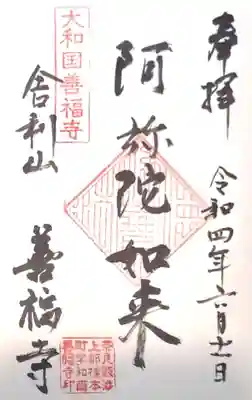 奉拝
令和四年六月十一日
阿弥陀如来
大和国善福寺
舎利山
善福寺